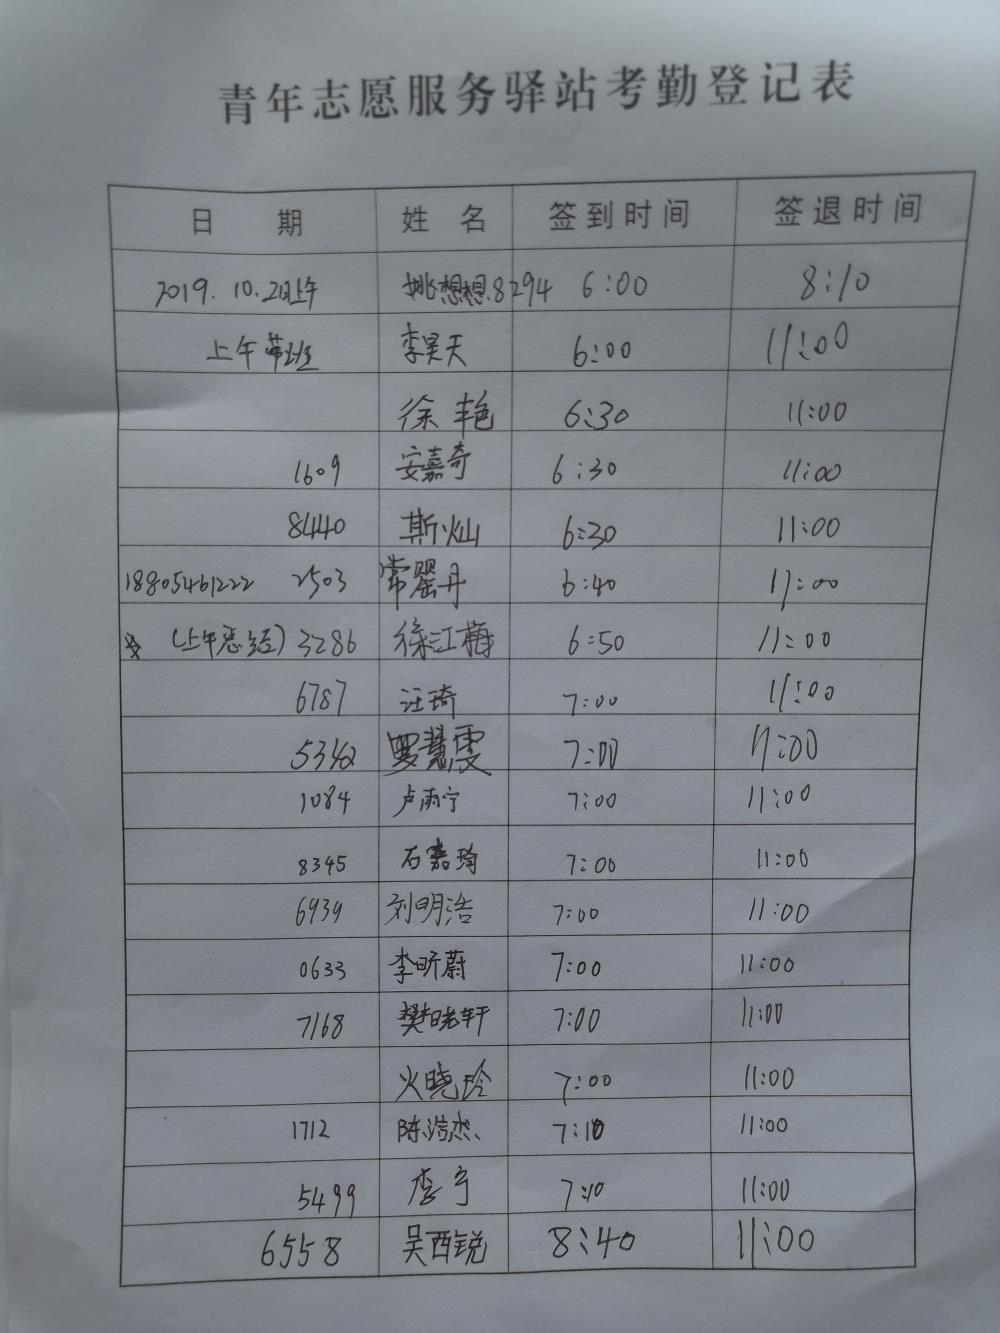 青年志愿服务驿站考勤登记表
日 期 姓 名 签到时间 签退时间
2019.10.2日上午 姚想想.8294 6:00 8:10
上午带班 李昊天 6:00 11:00
徐艳 6:30 11:00
1609 安嘉奇 6:30 11:00
8440 斯灿 6:30 11:00
18805461222 2503 常翟丹 6:40 11:00
(上午总经) 3286 徐江梅 6:50 11:00
6787 汪琦 7:00 11:00
5342 罗慧雯 7:00 11:00
1084 卢雨宁 7:00 11:00
8345 石嘉琦 7:00 11:00
6939 刘明浩 7:00 11:00
0633 李昕蔚 7:00 11:00
7168 樊晓轩 7:00 11:00
火晓玲 7:00 11:00
1712 陈浩杰、 7:10 11:00
5499 李宁 7:10 11:00
6558 吴西锐 8:40 11:00